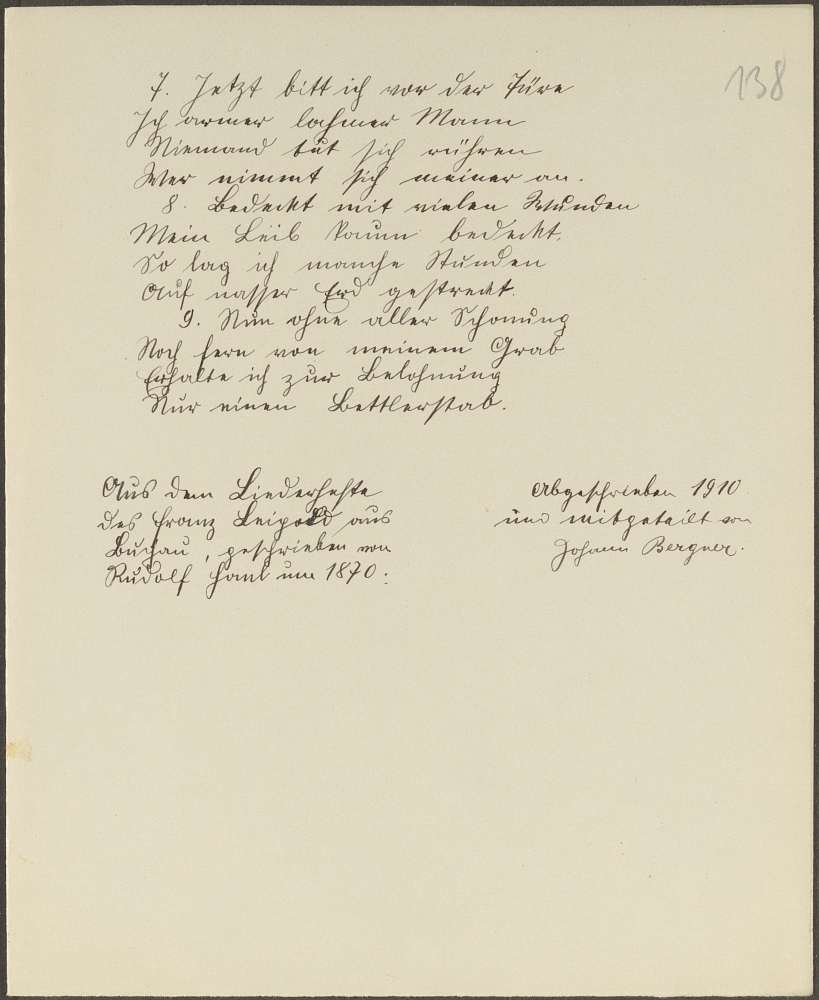 138
7. Jetzt bitt ich vor der Türe
Ich armer lahmer Mann
Niemand tut sich rühren
Wer nimmt sich meiner an.
8. Bedeckt mit vielen Wunden
Mein Leib kaum bedeckt,
So lag ich manche Stunden
Auf nasser Erd gestreckt.
9. Nun ohne aller Schonung
Noch fern von meinem Grab
Erhalte ich zur Belohnung
Nur einen Bettlerstab.
Aus dem Liederhefte
des Franz Leipold aus
Buchau, geschrieben von
Rudolf Hanl um 1870.
Abgeschrieben 1910
und mitgeteilt von
Johann Bergner.